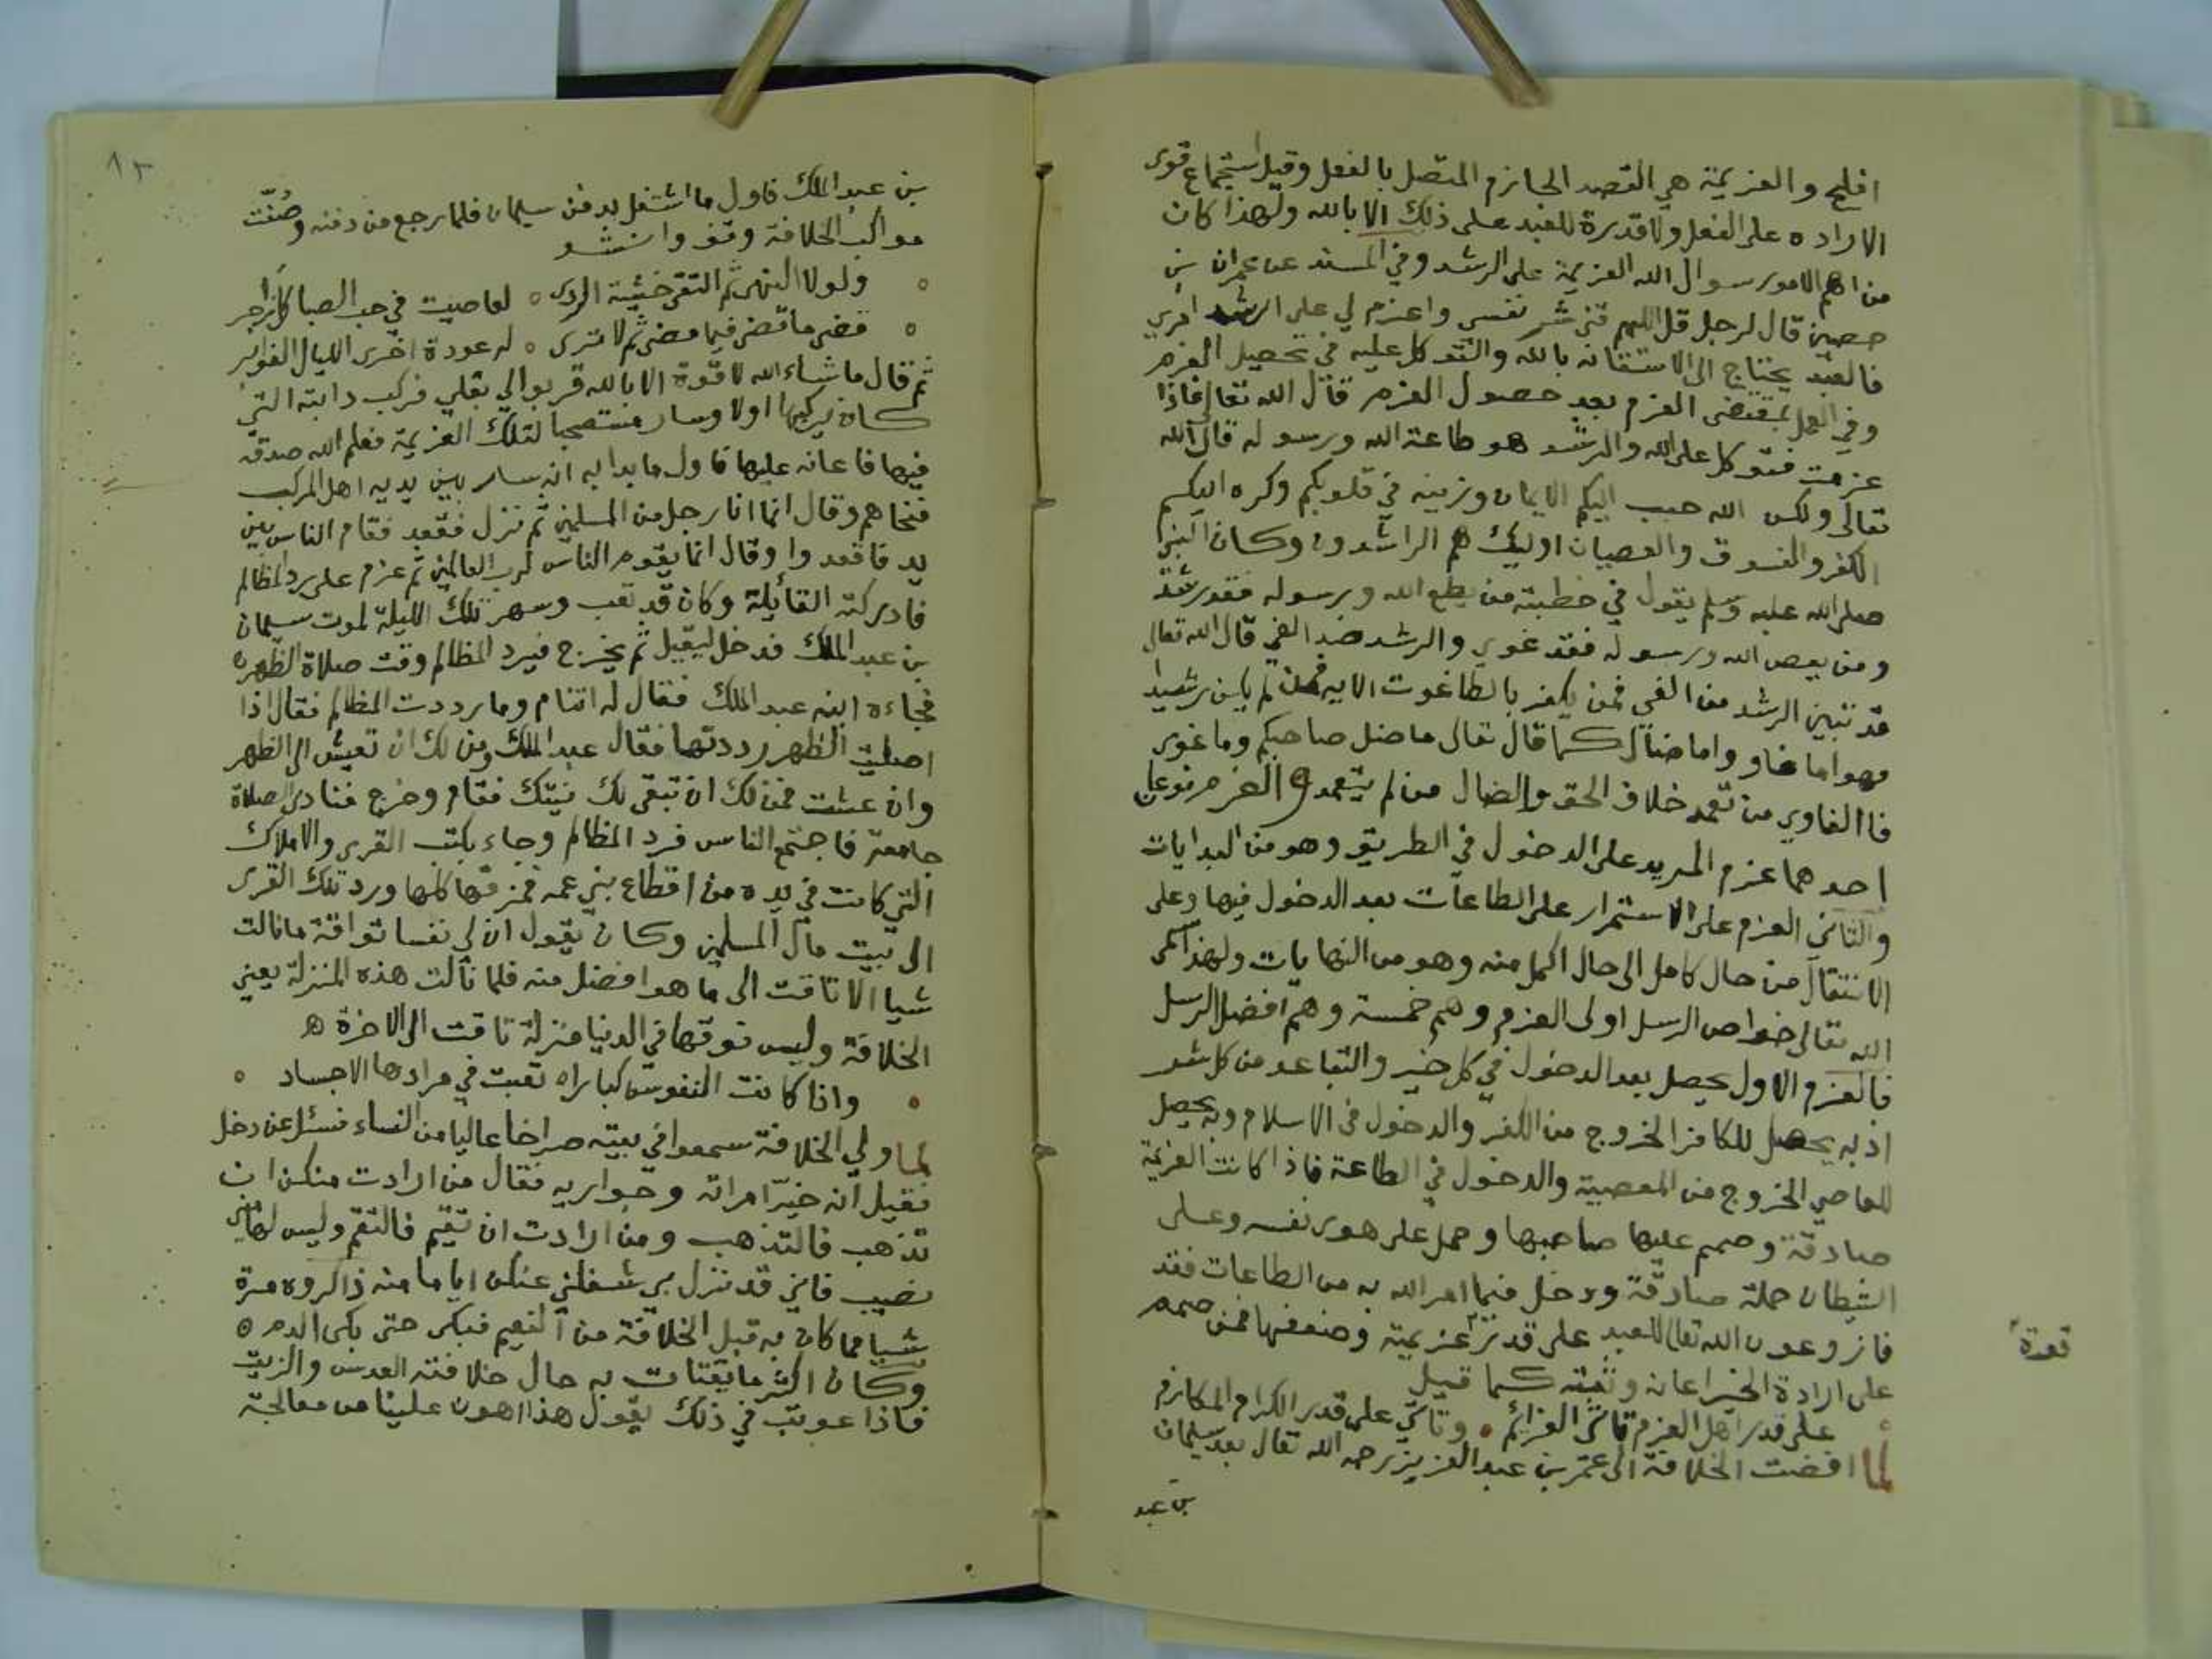 افلح والعزيمة هي القصد الجازم المتصل بالفعل وقيل استجماع قوى
الاراده على الفعل ولا قدرة للعبد على ذلك الا بالله ولهذا كان
من اهم الامور سوال الله العزيمة على الرشد وفي المسند عن عمران بن
حصين قال لرجل قل اللهم قني شر نفسي واعزم لي على ارشد امري
فالعبد يحتاج الى الاستعانه بالله والتوكل عليه في تحصيل العزم
وفي العمل بمقتضى العزم بعد حصول العزم قال الله تعالى فاذا
عزمت فتوكل على الله والرشد هو طاعة الله ورسوله قال الله
تعالى ولكن الله حبب اليكم الايمان وزينه في قلوبكم وكره اليكم
الكفر والفسوق والعصيان اوليك هم الراشدون وكان النبي
صلى الله عليه وسلم يقول في خطبته من يطع الله ورسوله فقد رشد
ومن يعص الله ورسوله فقد غوي والرشد ضد الغي قال الله تعالى
قد تبين الرشد من الغي فمن يكفر بالطاغوت الايه فمن لم يكن رشيدا
فهو اما غاو واما ضال كما قال تعالى ما ضل صاحبكم وما غوى
فاالغاوي من تعمد خلاف الحق والضال من لم يتعمد والعزم نوعان
احدهما عزم المريد على الدخول في الطريق وهو من البدايات
والثاني العزم على الاستمرار على الطاعات بعد الدخول فيها وعلى
الانتقال من حال كامل الى حال اكمل منه وهو من النهايات ولهذا سمى
الله تعالى خواص الرسل اولى العزم وهم خمسة وهم افضل الرسل
فالعزم الاول يحصل بعد الدخول في كل خير والتباعد من كل شر
اذ به يحصل للكافر الخروج من الكفر والدخول في الاسلام وبه يحصل
للعاصي الخروج من المعصية والدخول في الطاعة فاذا كانت العزيمة
صادقة وصمم عليها صاحبها وحمل على هوى نفسه وعلى
الشيطان حملة صادقة ودخل فيما امر الله به من الطاعات فقد
فاز وعون الله تعالى للعبد على قدر عزيمته وضعفها فمن صمم
قوة
على ارادة الخير اعانه وثبته كما قيل
على قدر اهل العزم تاتي العزائم ۰ وتاتي على قدر الكرام المكارم
لما افضت الخلافة الى عمر بن عبد العزيز رحمه الله تعالى بعد سليمان
بن عبد
١٣
بن عبد الملك فاول ما اشتغل به دفن سليمان فلما رجع من دفنه وصفت
مواكب الخلافة وقف وانشد
۰ ولولا النهى ثم التقى خشية الردى ۰ لعاصيت في حب الصبا كل زاجر
۰ قضى ما قضى فيما مضى ثم لا ترى ۰ له عودة اخرى الليال الغوابر
ثم قال ما شاء الله لا قوة الا بالله قربوا الي بغلي فركب دابته التي
كان يركبها اولا وسار مستصحبا لتلك العزيمة فعلم الله صدقه
فيها فاعانه عليها فاول ما بدا به انه سار بين يديه اهل المركب
فنحاهم وقال انما انا رجل من المسلمين ثم نزل فقعد فقام الناس بين
يديه فاقعدوا وقال انما يقوم الناس لرب العالمين ثم عزم على رد المظالم
فادركته القائلة وكان قد تعب وسهر تلك الليلة لموت سليمان
بن عبد الملك فدخل ليقيل ثم يخرج فيرد المظالم وقت صلاة الظهره
فجاءه ابنه عبد الملك فقال له اتنام وما رددت المظالم فقال اذا
اصليت الظهر رددتها فقال عبد الملك ومن لك ان تعيش الى الظهر
وان عشت فمن لك ان تبقى لك نيتك فقام وخرج فنادى الصلاة
جامعة فاجتمع الناس فرد المظالم وجاء بكتب القرى والاملاك
التي كانت في يده من اقطاع بني عمه فمزقها كلها ورد تلك القرى
الى بيت مال المسلمين وكان يقول ان لي نفسا تواقة ما نالت
شيا الا تاقت الى ما هو افضل منه فلما نالت هذه المنزلة يعني
الخلافة وليس فوقها في الدنيا منزلة تاقت الى الاخرة ه
۰ واذا كانت النفوس كبارا ه تعبت في مرادها الاجساد ۰
لما ولي الخلافة سمعوا في بيته صراخا عاليا من النساء فسئل عن دخل
فقيل انه خيّر امراته وجواريه فقال من ارادت منكن ان
تذهب فالتذهب ومن ارادت ان تقيم فالتقم وليس لها مني
نصيب فاني قد نزل بي شغلني عنكن اياما منه ذاكروه مرة
شيا مما كان به قبل الخلافة من النعيم فبكى حتى بكى الدم ه
وكان اكثر ما يقتات به حال خلافته العدس والزيت
فاذا عوتب في ذلك يقول هذا اهون علينا من معالجة